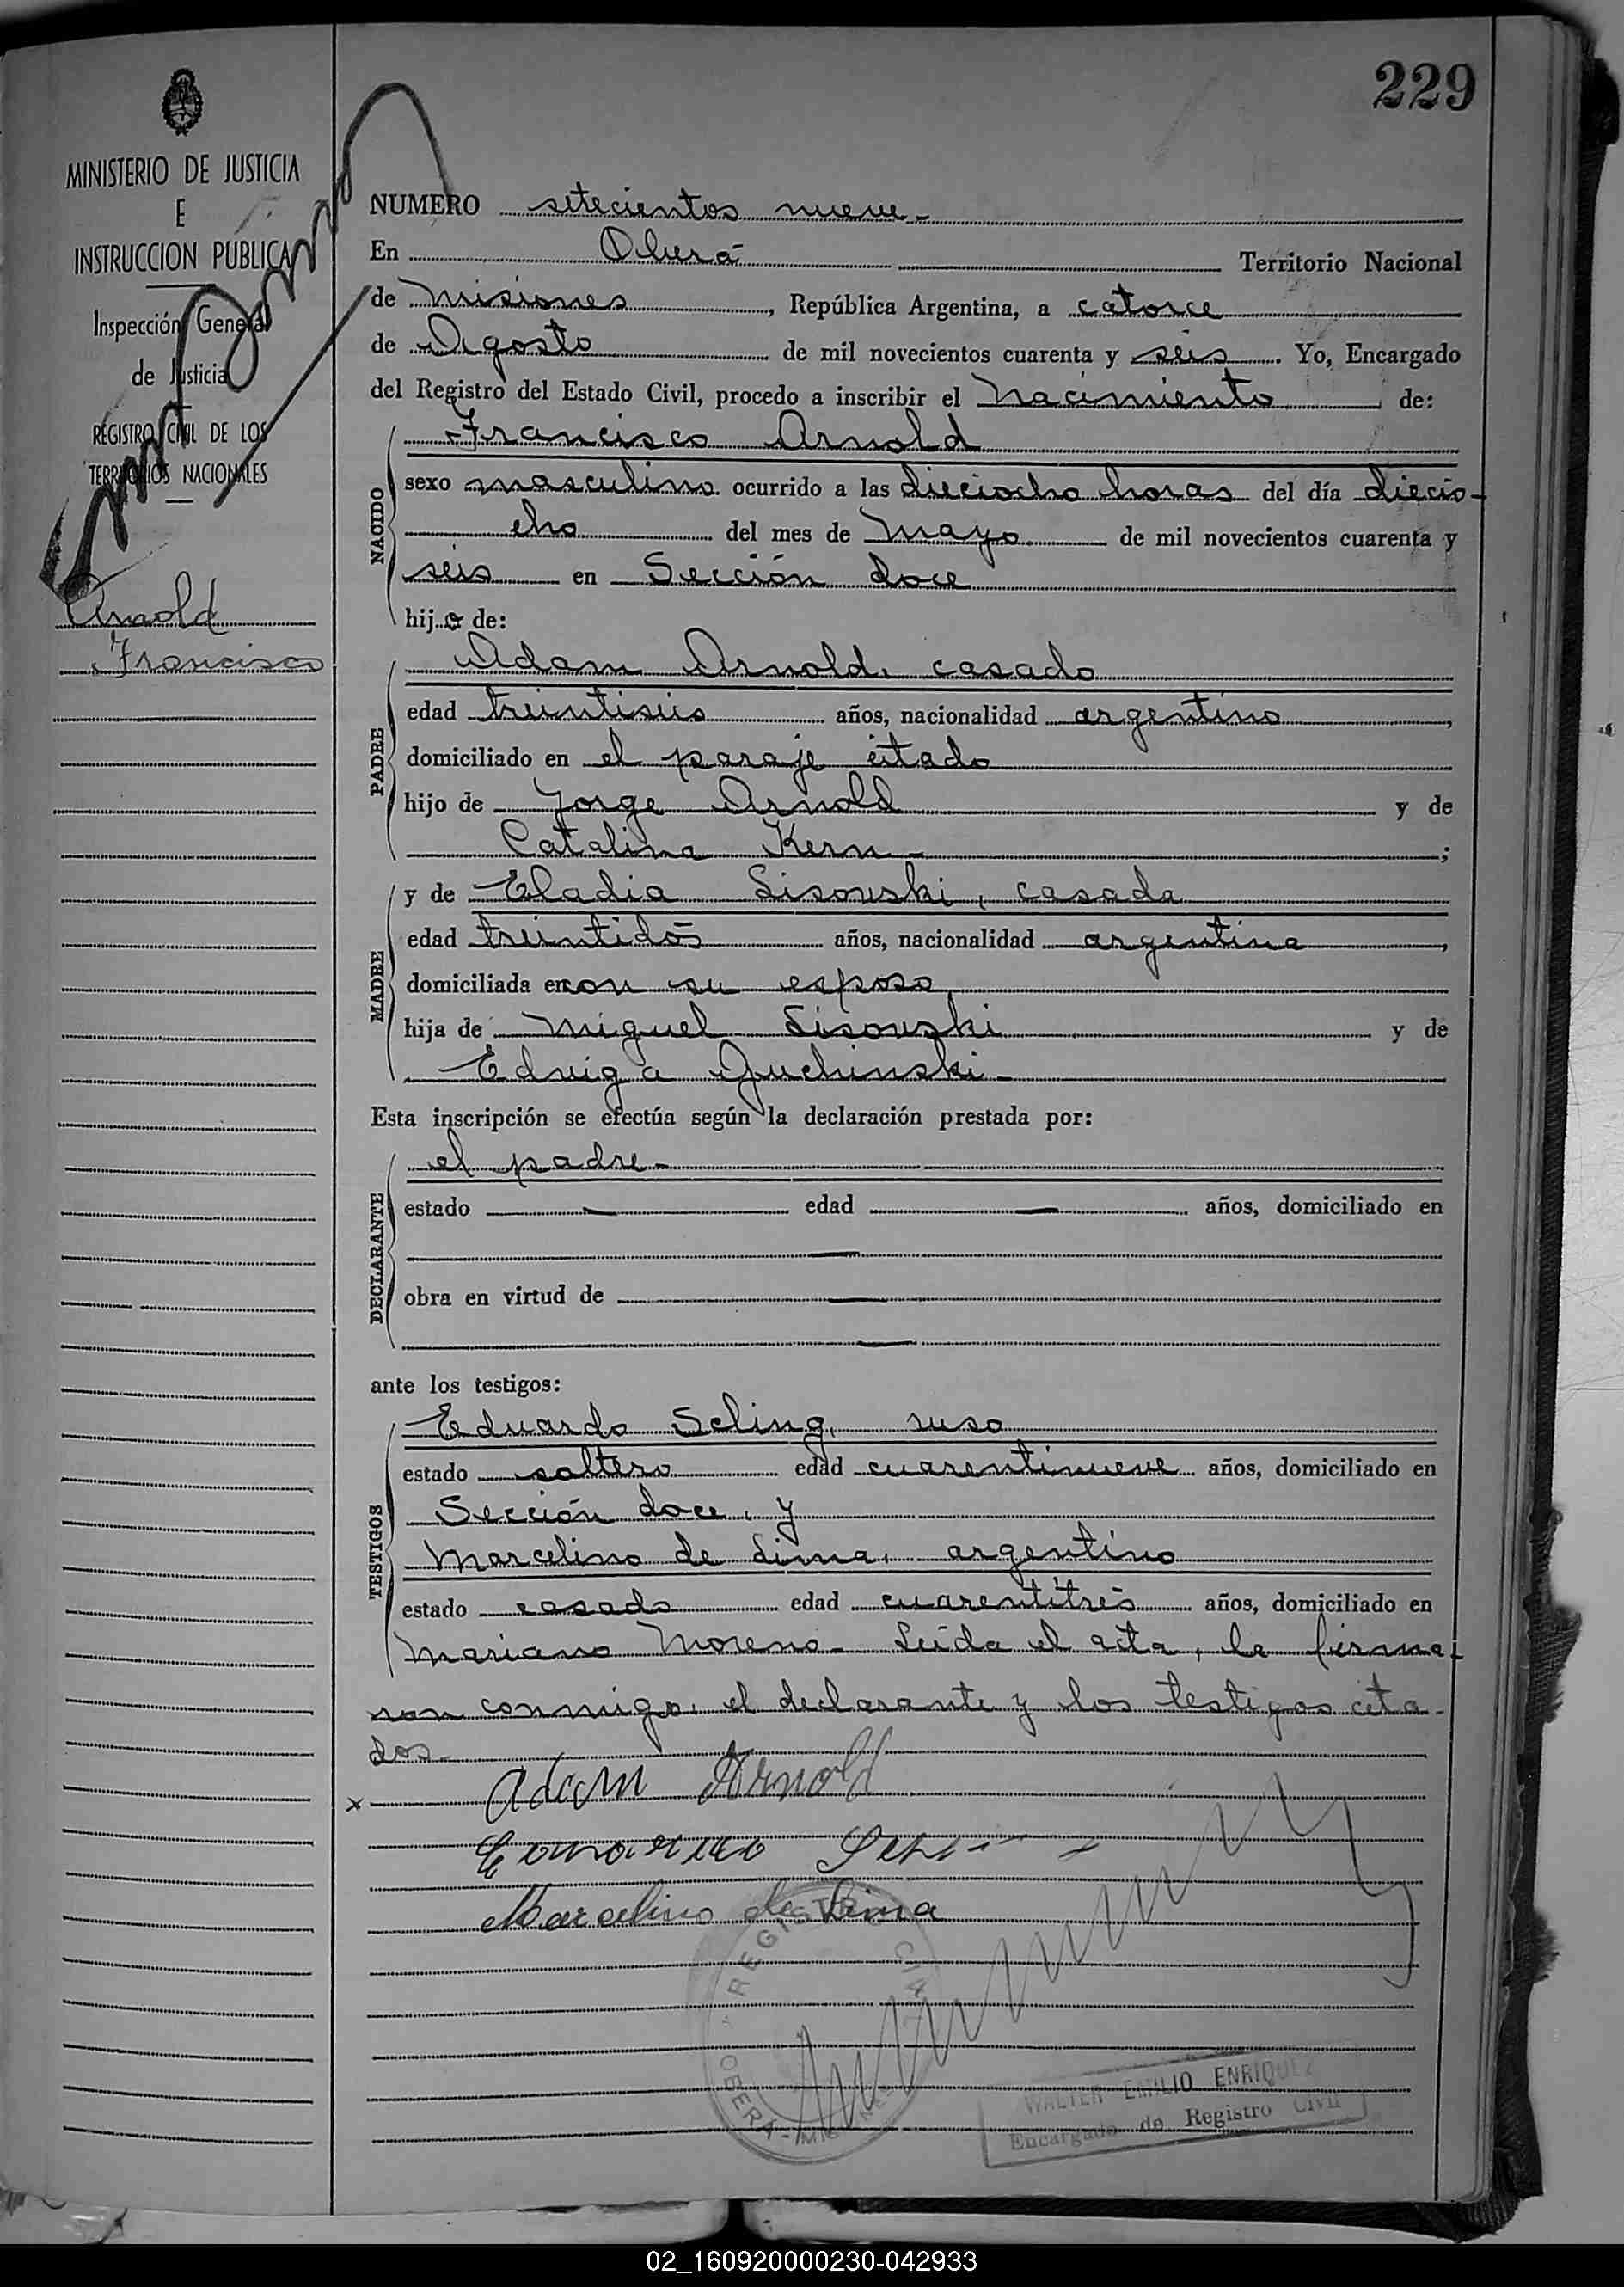 229
MINISTERIO DE JUSTICIA
E
INSTRUCCION PUBLICA
Inspección General
de Justicia
REGISTRO CIVIL DE LOS
TERRITORIOS NACIONALES
Arnold
Francisco
NUMERO setecientos nueve-
En Oberá Territorio Nacional
de Misiones, República Argentina, a catorce
de Agosto de mil novecientos cuarenta y seis. Yo, Encargado
del Registro del Estado Civil, procedo a inscribir el Nacimiento de:
NACIDO
Francisco Arnold
sexo masculino ocurrido a las dieciocho horas del día diecio-
cho del mes de Mayo de mil novecientos cuarenta y
seis en Sección doce
hijo de:
PADRE
Adam Arnold, casado
edad treintiseis años, nacionalidad argentino,
domiciliado en el paraje citado
hijo de Jorge Arnold y de
Catalina Kern- ;
MADRE
y de Eladia Lisowski, casada
edad treintidós años, nacionalidad argentina,
domiciliada en con su esposo
hija de Miguel Lisowski y de
Eduiga Guchinski-
Esta inscripción se efectúa según la declaración prestada por:
DECLARANTE
el padre-
estado — edad — años, domiciliado en
—
obra en virtud de —
—
ante los testigos:
TESTIGOS
Eduardo Seling, ruso
estado soltero edad cuarentinueve años, domiciliado en
Sección doce, y
Marcelino de Lima, argentino
estado casado edad cuarentitrés años, domiciliado en
Mariano Moreno- Leída el acta, la firma-
ron conmigo, el declarante y los testigos cita-
dos-
x Adam Arnold
Marcelino de Lima
REGISTRO CIVIL
OBERA - MISIONES
WALTER EMILIO ENRIQUEZ
Encargado de Registro Civil
02_160920000230-042933